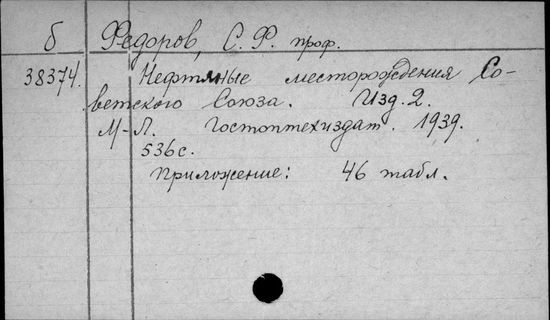 б Федоров, С. Ф. проф.
38374. Нефтяные месторождения Со-
ветского Союза. Изд. 2.
М-Л. Гостоптехиздат. 1939.
536 с.
Приложение: 46 табл.